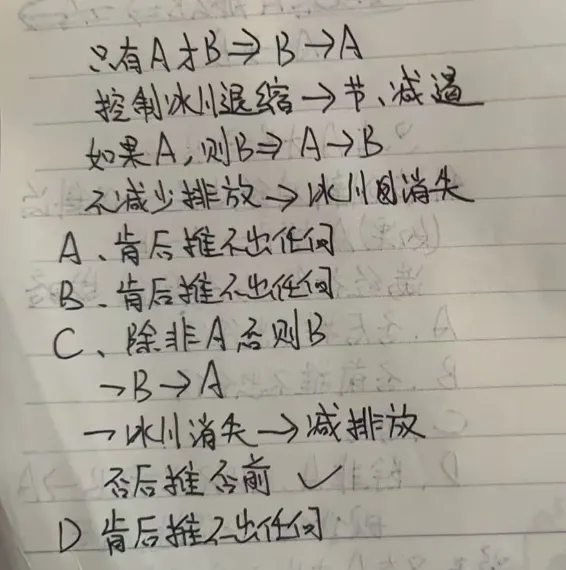 只有A才B⇒B→A
控制冰川退缩→节、减温
如果A,则B⇒A→B
不减少排放→冰川消失
A、肯后推不出任何
B、肯后推不出任何
C、除非A否则B
¬B→A
¬冰川消失→减排放
否后推否前 ✓
D 肯后推不出任何